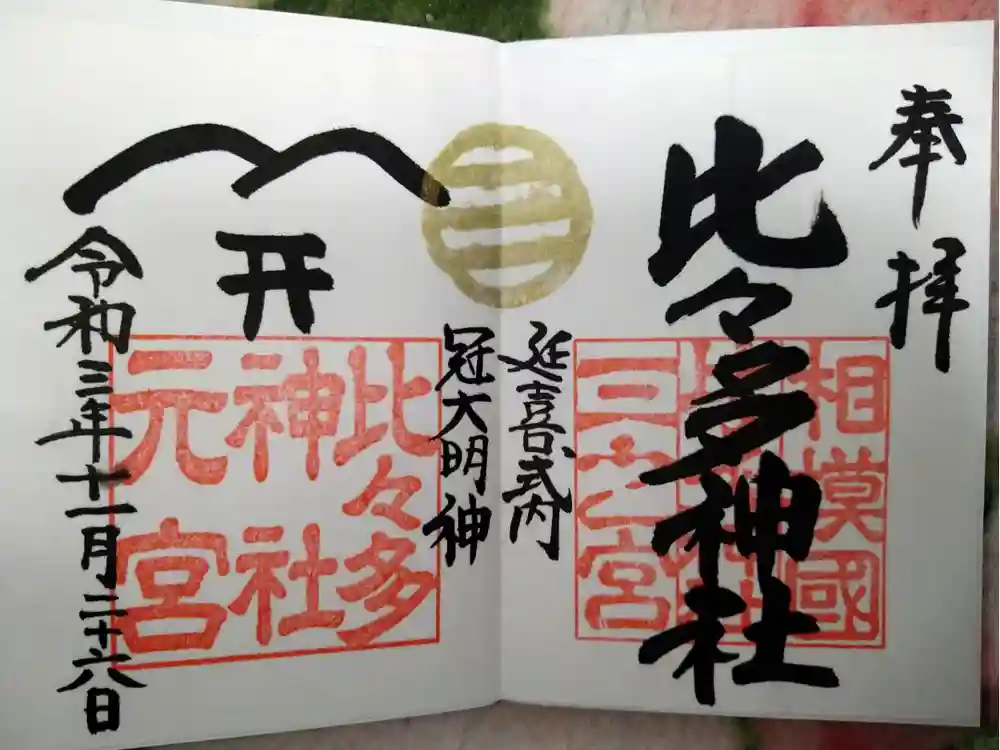 奉拝
比々多神社
相模國
三之宮
延喜式内
冠大明神
比々多
神社
元宮
開
令和三年十一月二十六日